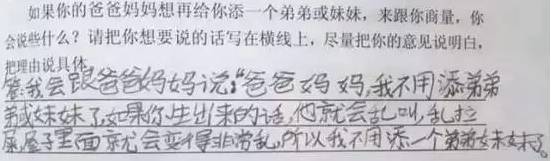 如果你的爸爸妈妈想再给你添一个弟弟或妹妹，来跟你商量，你
会说些什么？请把你想要说的话写在横线上，尽量把你的意见说明白，
把理由说具体。
答：我会跟爸爸妈妈说：“爸爸妈妈，我不用添弟弟
弟或妹妹了，如果你生出来的话，他就会乱叫，乱拉
屋子里面就会变得非常乱，所以我不用添一个弟弟妹妹了。